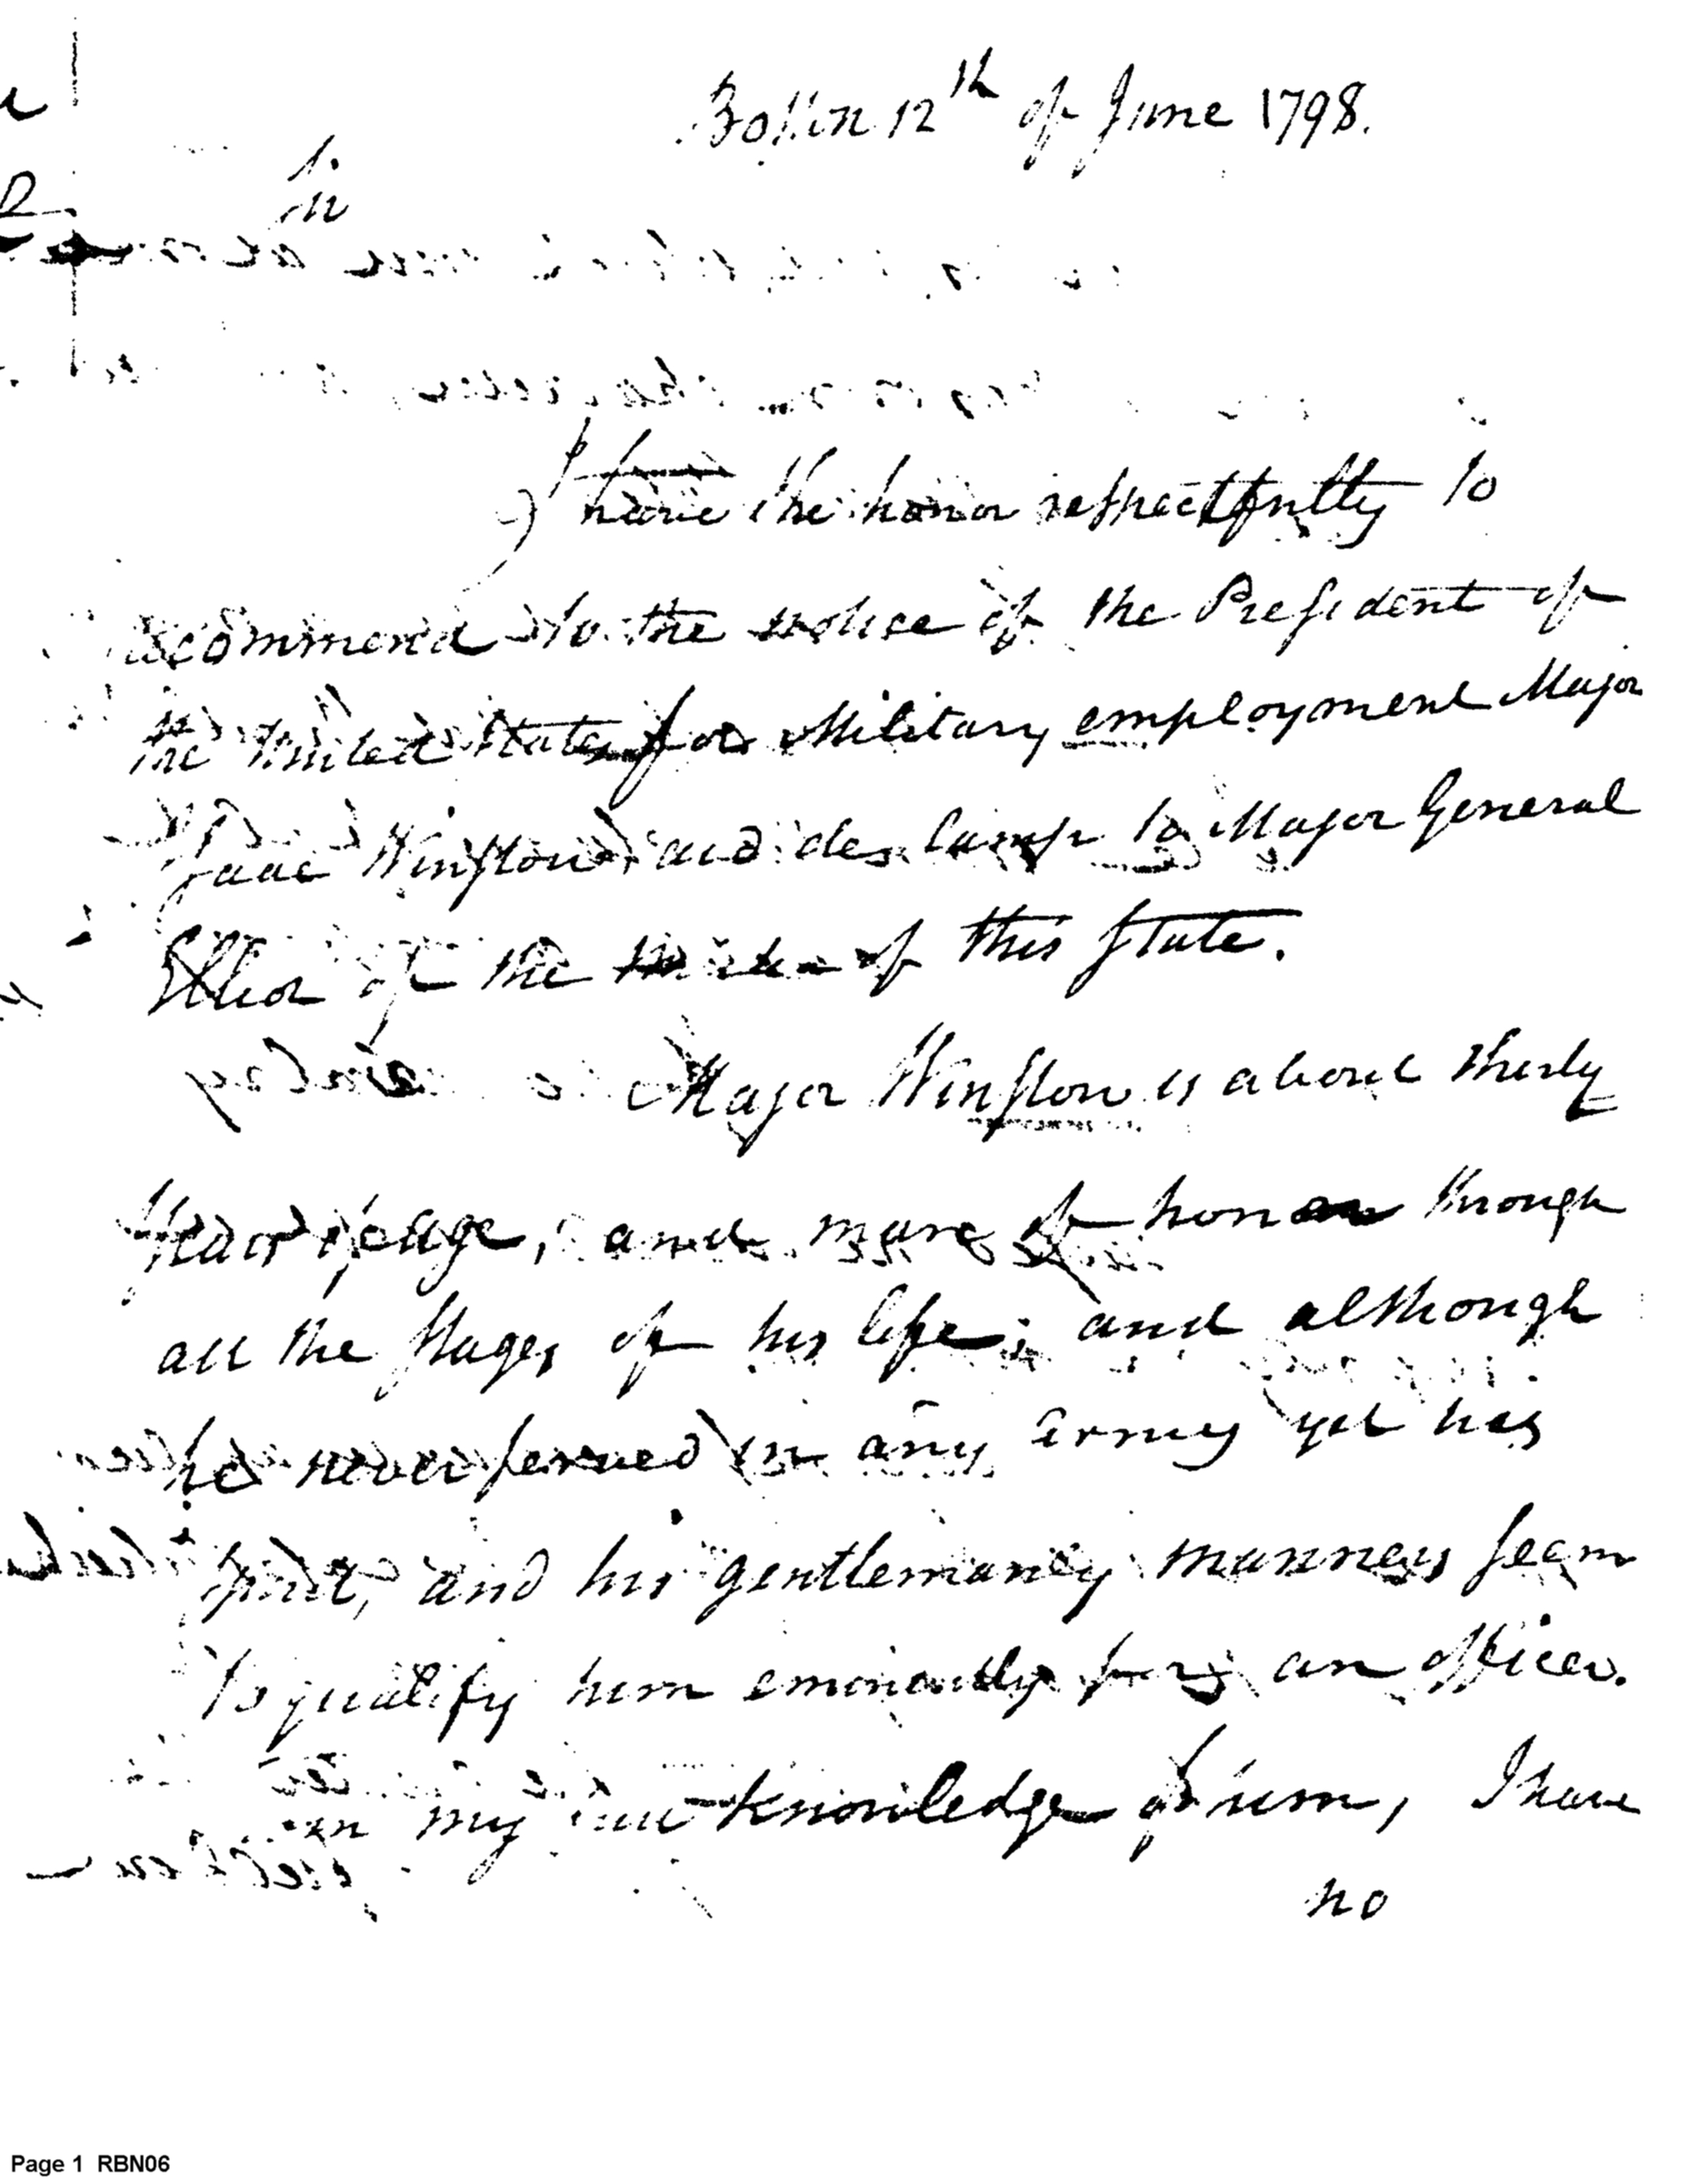 Boston 12th of June 1798.
Sir
I have the honor respectfully to
recommend to the notice of the President of
the United States for Military employment Major
Isaac Winslow, aid des Camp to Major General
Elliot of the of this State.
Major Winslow is about thirty
Years of age, and man of honor through
all the Stages of his life; and although
he never served in any army yet his
spirit, and his gentlemanly manners seem
to qualify him eminently for an officer.
my knowledge of him, I have
no
Page 1 RBN06